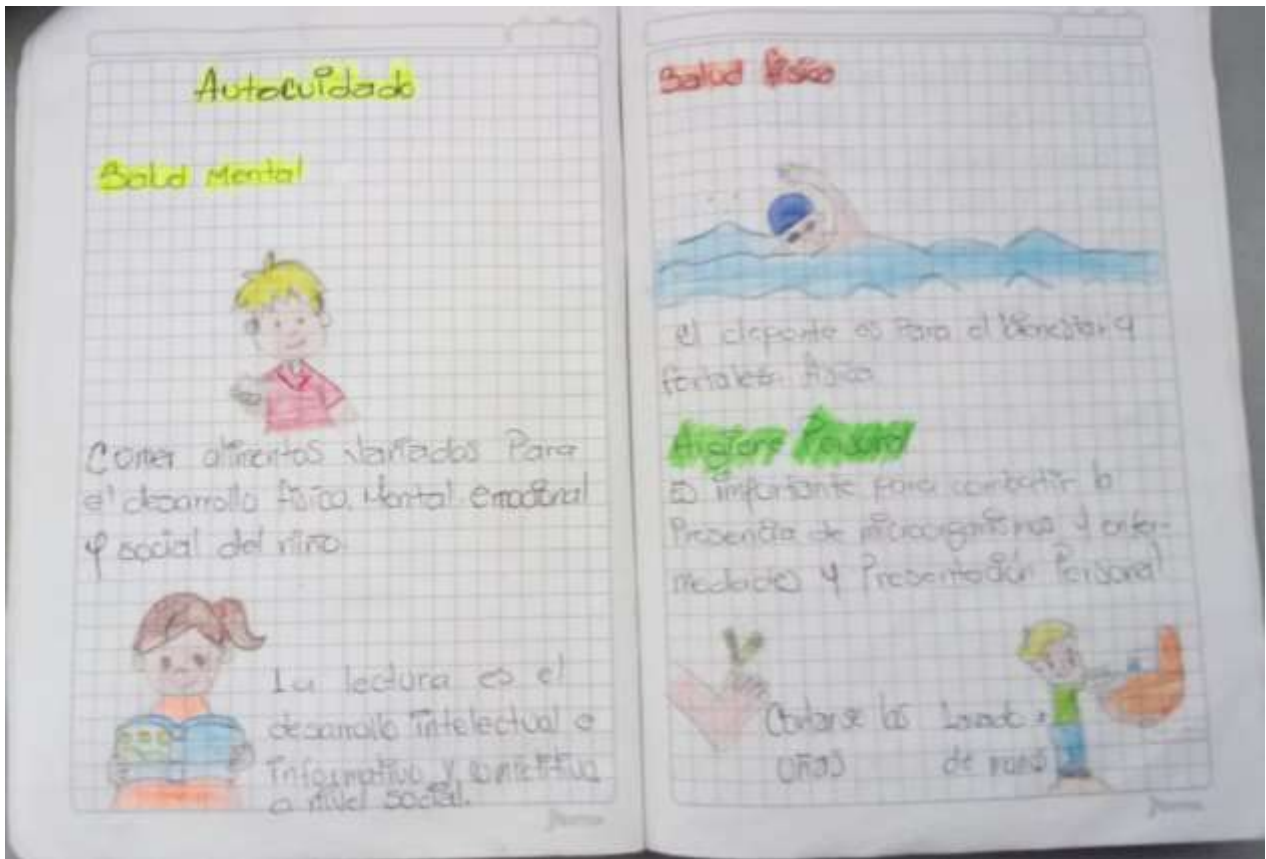 Autocuidado
Salud Mental
Comer alimentos variados Para
el desarrollo físico, Mental emocional
y social del niño.
La lectura es el
desarrollo intelectual e
informativo y
a nivel social.
Salud física
el deporte es Para el bienestar y
física
Personal
Es importante para combatir la
Presencia de microorganismos y enfer-
medades y Presentación Personal
Cortarse las
uñas
Lavado
de manos